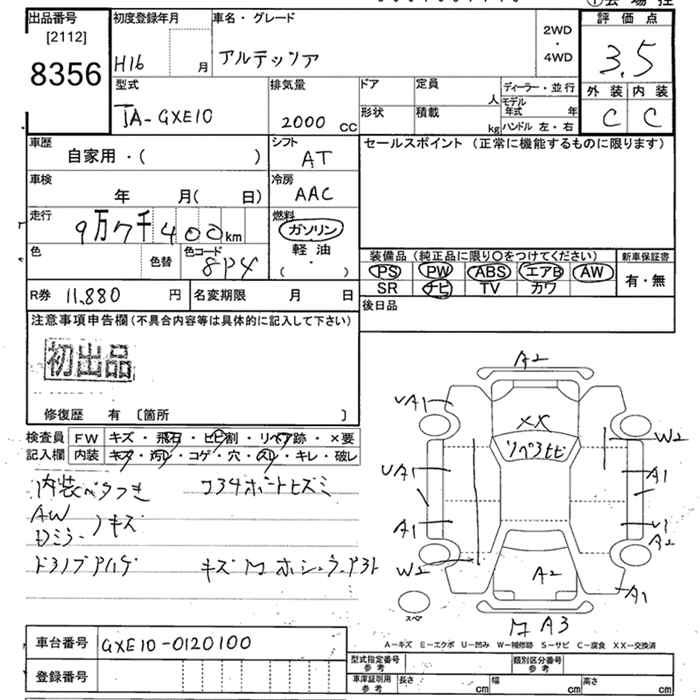 出品番号
[2112]
8356
初度登録年月
H16
月
車名・グレード
アルテッツァ
2WD
・
4WD
評価点
3.5
外装 内装
C C
型式
TA-GXE10
排気量
2000 CC
ドア
定員
人
形状
積載
kg
ディーラー・並行
モデル年式 年
ハンドル 左・右
車歴
自家用・( )
シフト
AT
セールスポイント (正常に機能するものに限ります)
車検
年 月( 日)
冷房
AAC
走行
9万7千400km
燃料
ガソリン
軽油
( ・ )
色
色替
色コード
8P4
装備品 (純正品に限り○をつけてください)
新車保証書
PS PW ABS エアB AW
SR ナビ TV カワ
有・無
R券 11,880 円
名変期限 月 日
後日品
注意事項申告欄 (不具合内容等は具体的に記入して下さい)
初出品
修復歴 有 [箇所 ]
検査員
記入欄
FW キズ・飛石・ヒビ割・リペア跡・×要
内装 キズ・汚レ・コゲ・穴・スレ・キレ・破レ
内装ベタつき
AW
Dミラー
キズ
A2
UA1
XX
W2
UA1
A1
A1
A2
W2
A2
A1
A3
スペア
A-キズ E-エクボ U-凹み W-補修跡 S-サビ C-腐食 XX-交換済
車台番号 GXE10-0120100
登録番号
型式指定番号
参考
類別区分番号
参考
車庫証明用
参考
長さ cm 幅 cm 高さ cm